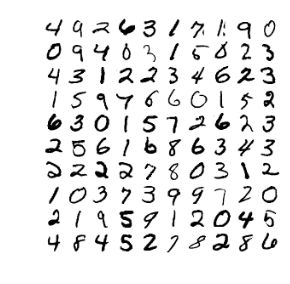 4 9 2 6 3 1 7 1 9 0
0 9 4 0 3 1 5 0 2 3
4 3 1 2 2 3 4 6 2 3
1 5 9 4 6 6 0 1 5 2
6 3 0 1 5 7 2 6 2 3
2 5 6 1 6 8 6 3 4 3
2 2 2 2 7 8 0 3 1 2
1 0 3 7 3 9 9 7 2 0
2 1 9 5 9 1 2 0 4 5
4 8 4 5 2 7 8 2 8 6